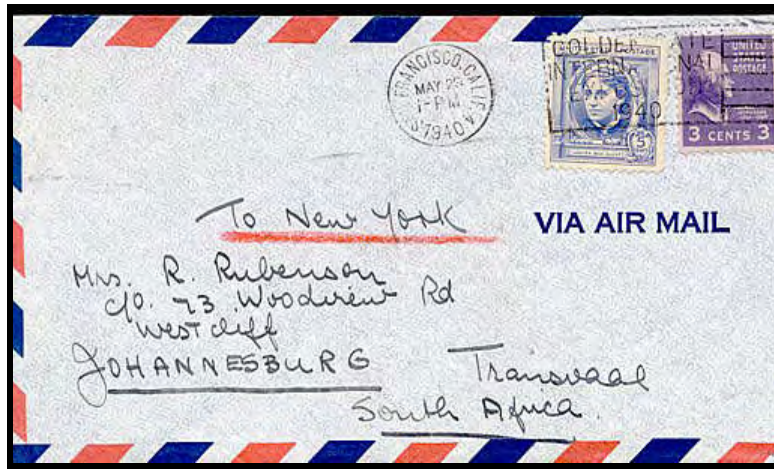 FRANCISCO, CALIF.
MAY 29
1-PM
1940
GOLDEN GATE
INTERNATIONAL
EXPOSITION
1940
POSTAGE
5
UNITED
STATES
POSTAGE
3 CENTS 3
To New York
VIA AIR MAIL
Mrs. R. Rubenson
c/o. 73 Woodview Rd
Westcliff
JOHANNESBURG
Transvaal
South Africa.